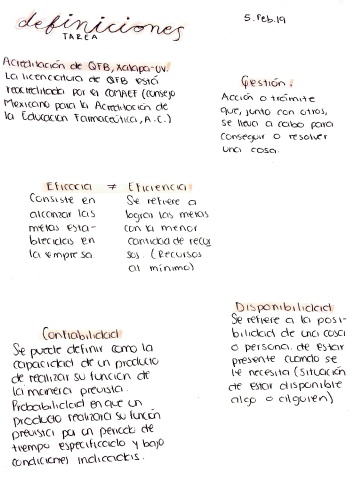 definiciones
TAREA
5. Feb. 19
Acreditación de QFB, Xalapa-UV.
La licenciatura de QFB está
reacreditada por el COMAEF (Consejo
Mexicano para la Acreditación de
la Educación Farmacéutica, A.C.)
Gestión:
Acción o trámite
que, junto con otros,
se lleva a cabo para
conseguir o resolver
una cosa.
Eficacia ≠ Eficiencia
Consiste en
alcanzar las
metas esta-
blecidas en
la empresa
Se refiere a
lograr las metas
con la menor
cantidad de recur
sos. (Recursos
al mínimo)
Disponibilidad
Se refiere a la posi-
bilidad de una cosa
o persona de estar
presente cuando se
le necesita (situación
de estar disponible
algo o alguien)
Confiabilidad
Se puede definir como la
capacidad de un producto
de realizar su función de
la manera prevista.
Probabilidad en que un
producto realizará su función
prevista por un periodo de
tiempo especificado y bajo
condiciones indicadas.